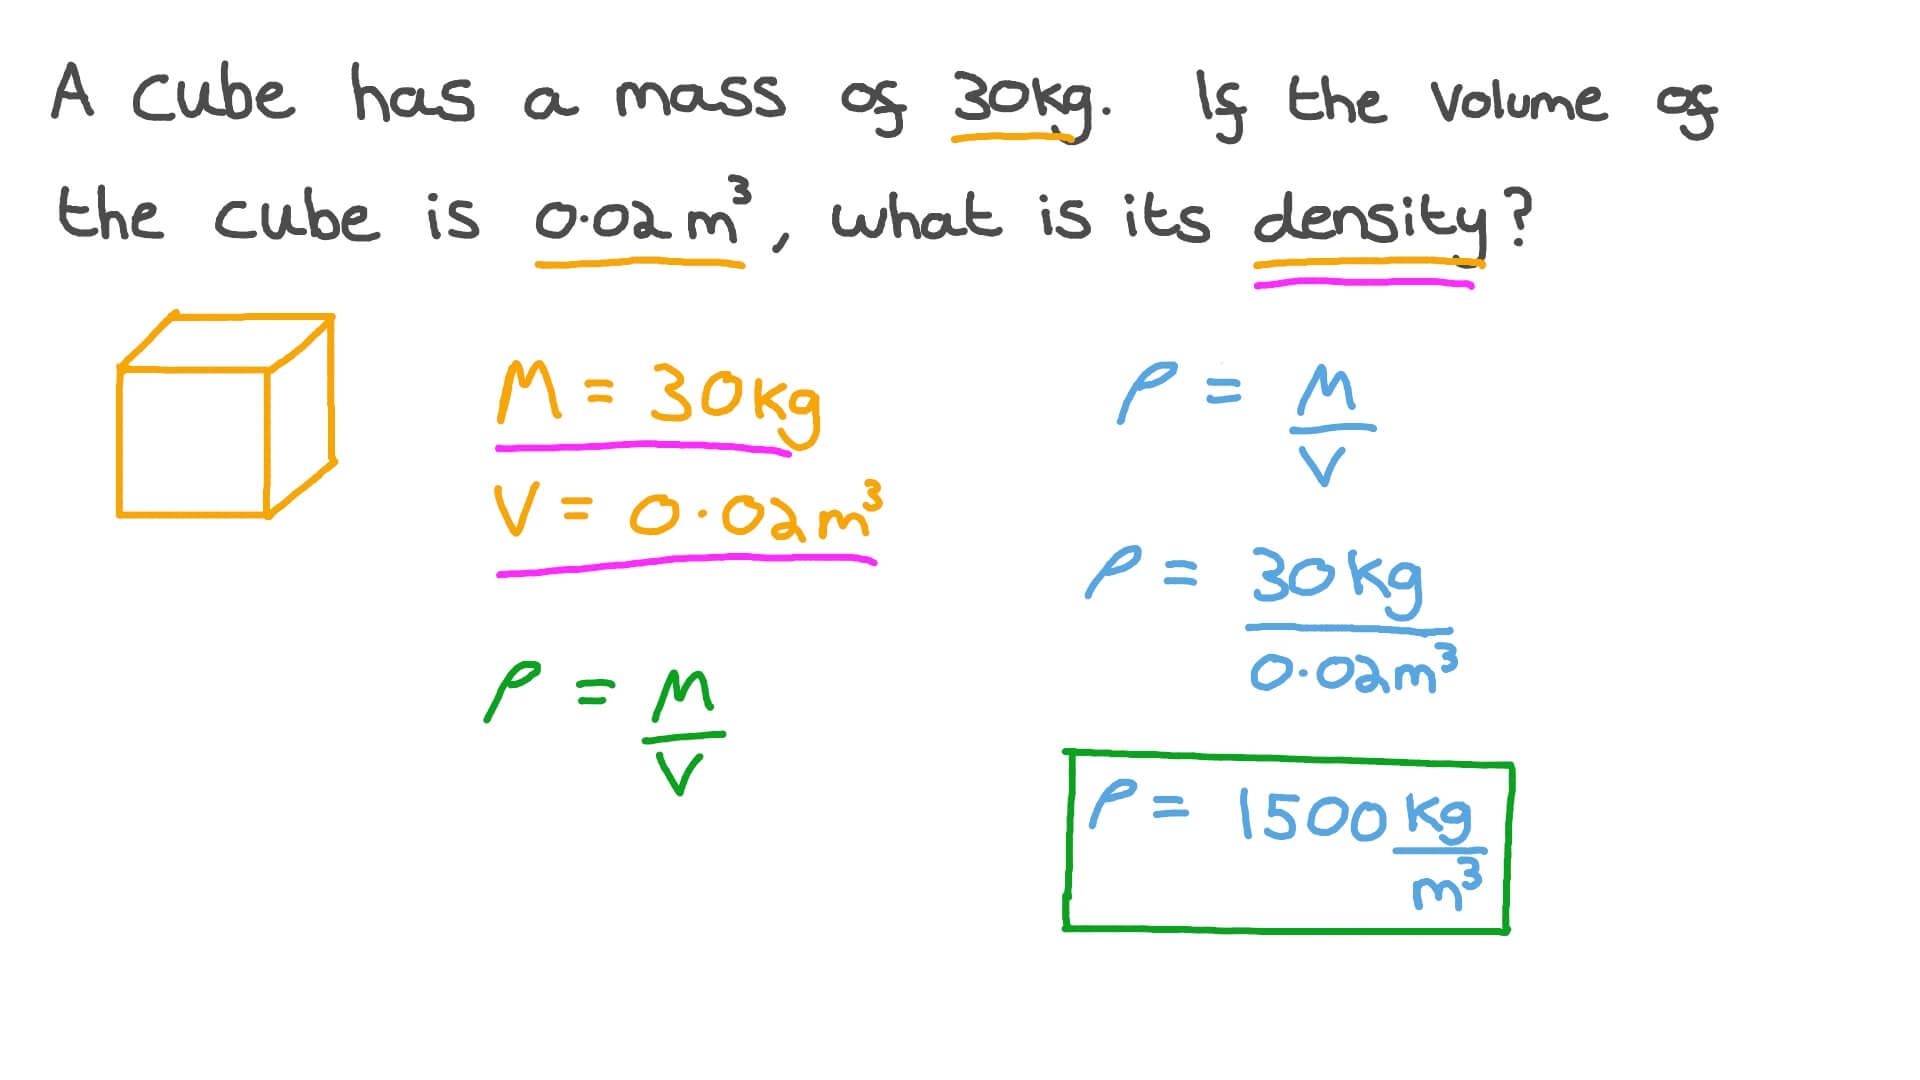 A cube has a mass of 30kg. If the volume of
the cube is 0.02m³, what is its density?
M = 30kg
V = 0.02m³
ρ = M
V
ρ = M
V
ρ = 30kg
0.02m³
ρ = 1500 kg
m³